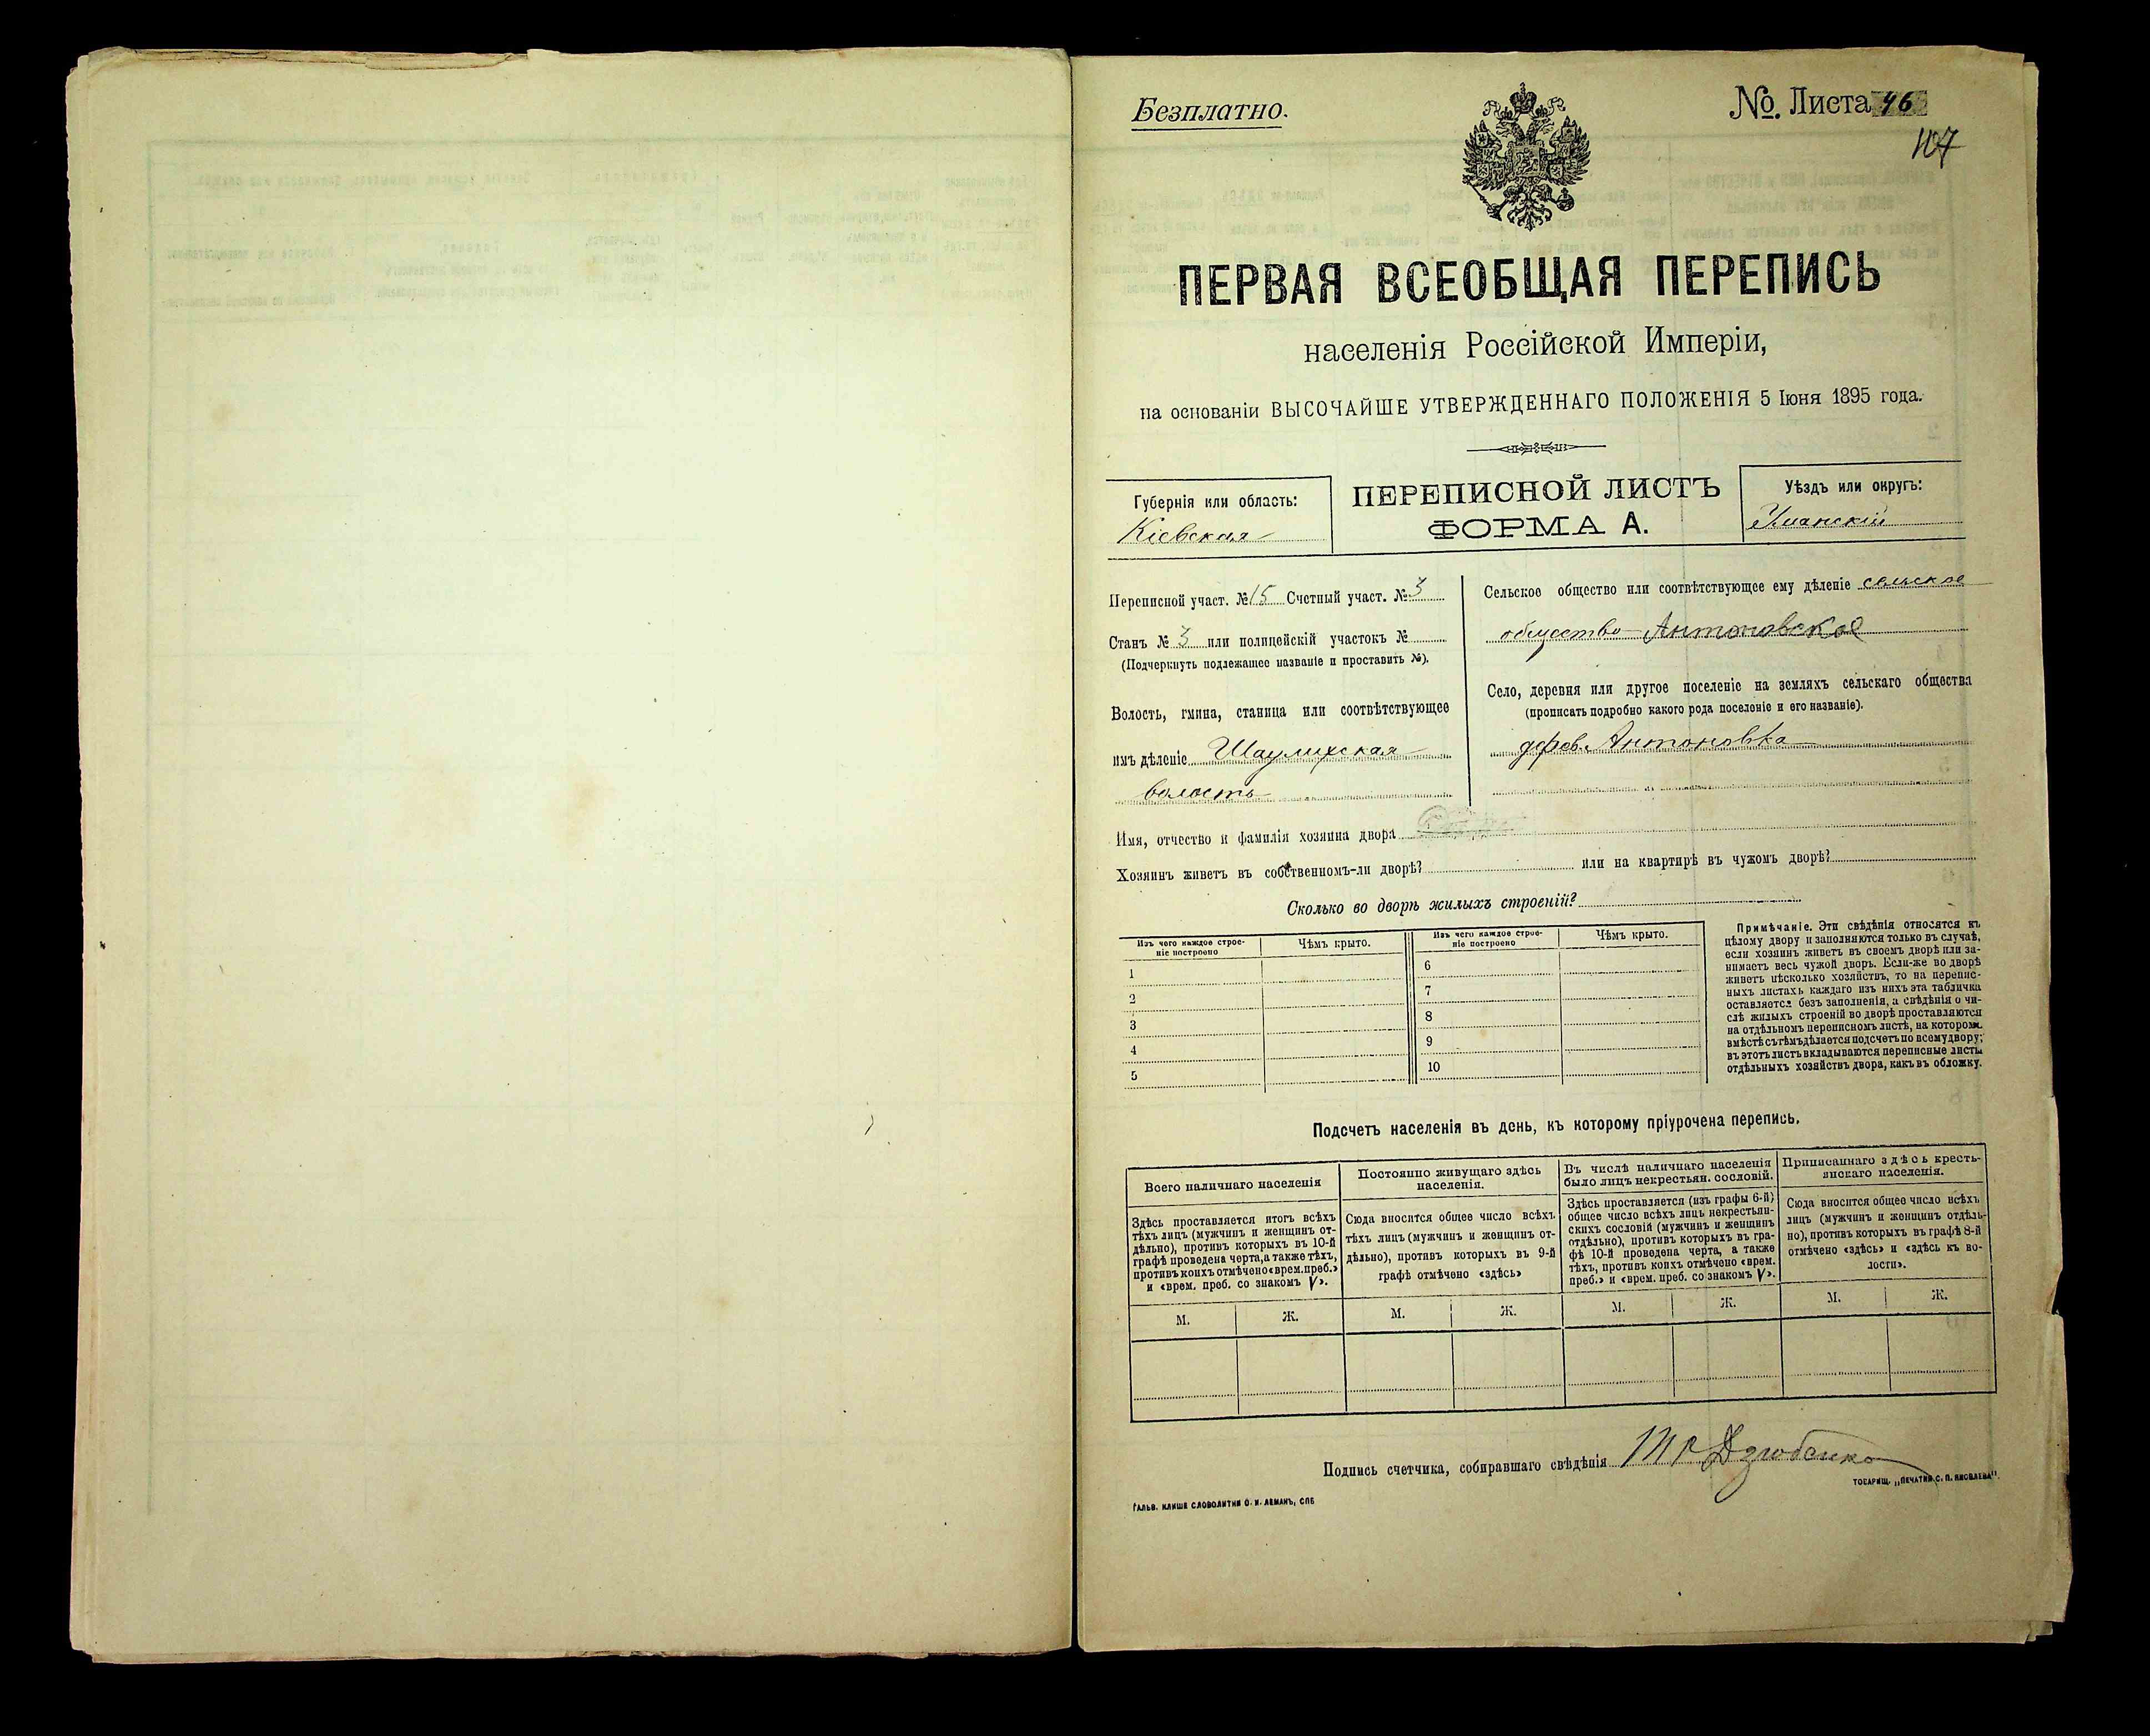 Безплатно.
№. Листа 46
107
ПЕРВАЯ ВСЕОБЩАЯ ПЕРЕПИСЬ
населенія Россійской Имперіи,
на основаніи ВЫСОЧАЙШЕ УТВЕРЖДЕННАГО ПОЛОЖЕНІЯ 5 Іюня 1895 года.
Губернія или область:
Кіевская
ПЕРЕПИСНОЙ ЛИСТЪ
ФОРМА А.
Уѣздъ или округъ:
Уманскій
Переписной участ. № 15 Счетный участ. № 3
Станъ № 3 или полицейскій участокъ №
(Подчеркнуть подлежащее названіе и проставить №).
Волость, гмина, станица или соотвѣтствующее
имъ дѣленіе Шаулихская
волость
Сельское общество или соотвѣтствующее ему дѣленіе сельское
общество Антоновское
Село, деревня или другое поселеніе на земляхъ сельскаго общества
(прописать подробно какого рода поселеніе и его названіе).
дерев. Антоновка
Имя, отчество и фамилія хозяина двора
Хозяинъ живетъ въ собственномъ-ли дворѣ? или на квартирѣ въ чужомъ дворѣ?
Сколько во дворѣ жилыхъ строеній?
Изъ чего каждое строе-
ніе построено
Чѣмъ крыто.
Изъ чего каждое строе-
ніе построено
Чѣмъ крыто.
1
2
3
4
5
6
7
8
9
10
Примѣчаніе. Эти свѣдѣнія относятся къ
цѣлому двору и заполняются только въ случаѣ,
если хозяинъ живетъ въ своемъ дворѣ или за-
нимаетъ весь чужой дворъ. Если-же во дворѣ
живетъ нѣсколько хозяйствъ, то на перепис-
ныхъ листахъ каждаго изъ нихъ эта табличка
оставляется безъ заполненія, а свѣдѣнія о чи-
слѣ жилыхъ строеній во дворѣ проставляются
на отдѣльномъ переписномъ листѣ, на которомъ
вмѣстѣ съ тѣмъ дѣлается подсчетъ по всему двору;
въ этотъ листъ вкладываются переписные листы
отдѣльныхъ хозяйствъ двора, какъ въ обложку.
Подсчетъ населенія въ день, къ которому пріурочена перепись.
Всего наличнаго населенія
Здѣсь проставляется итогъ всѣхъ
тѣхъ лицъ (мужчинъ и женщинъ от-
дѣльно), противъ которыхъ въ 10-й
графѣ проведена черта, а также тѣхъ,
противъ коихъ отмѣчено «врем. преб.»
и «врем. преб. со знакомъ V».
М. Ж.
Постоянно живущаго здѣсь
населенія.
Сюда вносится общее число всѣхъ
тѣхъ лицъ (мужчинъ и женщинъ от-
дѣльно), противъ которыхъ въ 9-й
графѣ отмѣчено «здѣсь»
М. Ж.
Въ числѣ наличнаго населенія
было лицъ некрестьян. сословій.
Здѣсь проставляется (изъ графы 6-й)
общее число всѣхъ лицъ некрестьян-
скихъ сословій (мужчинъ и женщинъ
отдѣльно), противъ которыхъ въ гра-
фѣ 10-й проведена черта, а также
тѣхъ, противъ коихъ отмѣчено «врем.
преб.» и «врем. преб. со знакомъ V».
М. Ж.
Приписаннаго здѣсь кресть-
янскаго населенія.
Сюда вносится общее число всѣхъ
лицъ (мужчинъ и женщинъ отдѣль-
но), противъ которыхъ въ графѣ 8-й
отмѣчено «здѣсь» и «здѣсь къ во-
лости».
М. Ж.
Подпись счетчика, собиравшаго свѣдѣнія Дзюбенко
ГАЛЬВ. КЛИШЕ СЛОВОЛИТНИ О. И. ЛЕМАНЪ, СПБ
ТОВАРИЩ. „ПЕЧАТНЯ С. П. ЯКОВЛЕВА".